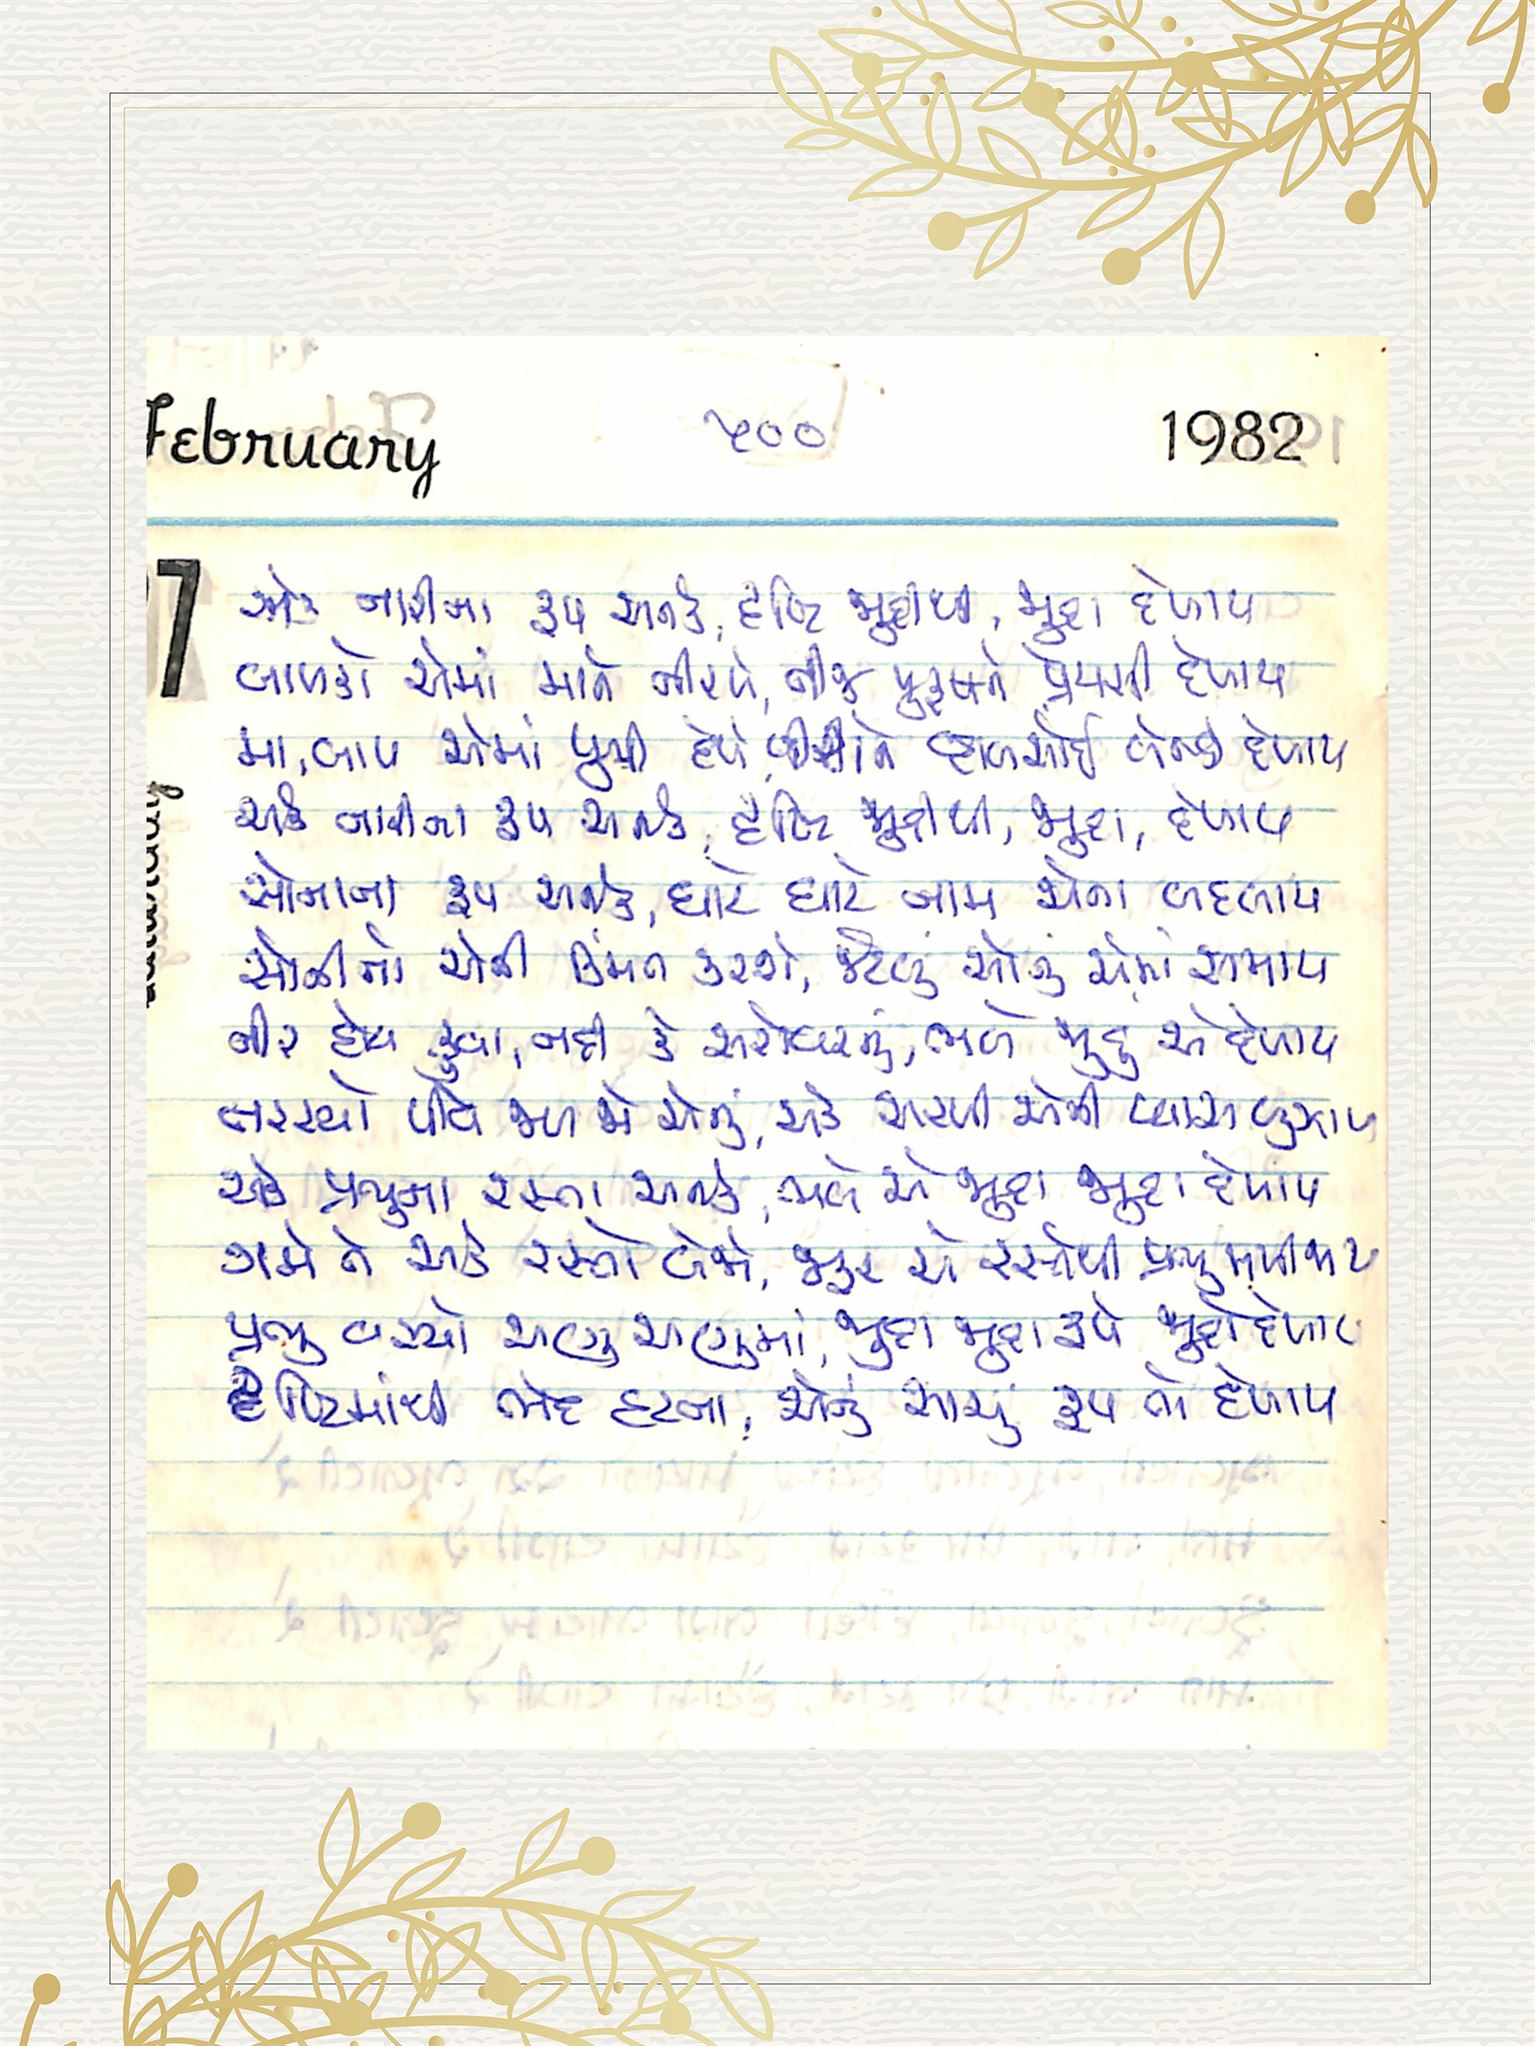 February ૫૦૦ 1982
7
એક નારીના રૂપ અનેક, દૃષ્ટિ જુદીથી, જુદા દેખાય
બાળકો એમાં માને નીરખે, નીજ પુરૂષને પ્રેયસી દેખાય
મા, બાપ એમાં પુત્રી દેખે, વીરાને વ્હાલસોઈ બેનડી દેખાય
એક નારીના રૂપ અનેક, દૃષ્ટિ જુદીથી, જુદા, દેખાય
સોનાના રૂપ અનેક, ઘાટે ઘાટે નામ એના બદલાય
સોનીતો એની કિંમત કરશે, જેટલું સોનું એમાં સમાય
નીર હોય કુવા, નદી કે સરોવરનું, ભલે જુદુ એ દેખાય
તરસ્યો પીવે જળ જો એનું, એક સરખી એની પ્યાસ બુઝાય
એક પ્રભુના રસ્તા અનેક, ભલે એ જુદા જુદા દેખાય
ગમે તે એક રસ્તો લેજો, જરૂર એ રસ્તેથી પ્રભુ મળી જાય
પ્રભુ વસ્યો અણુ અણુમાં, જુદા જુદા રૂપે જુદો દેખાય
દૃષ્ટિમાંથી ભેદ હટતા, એનું સાચું રૂપ તો દેખાય